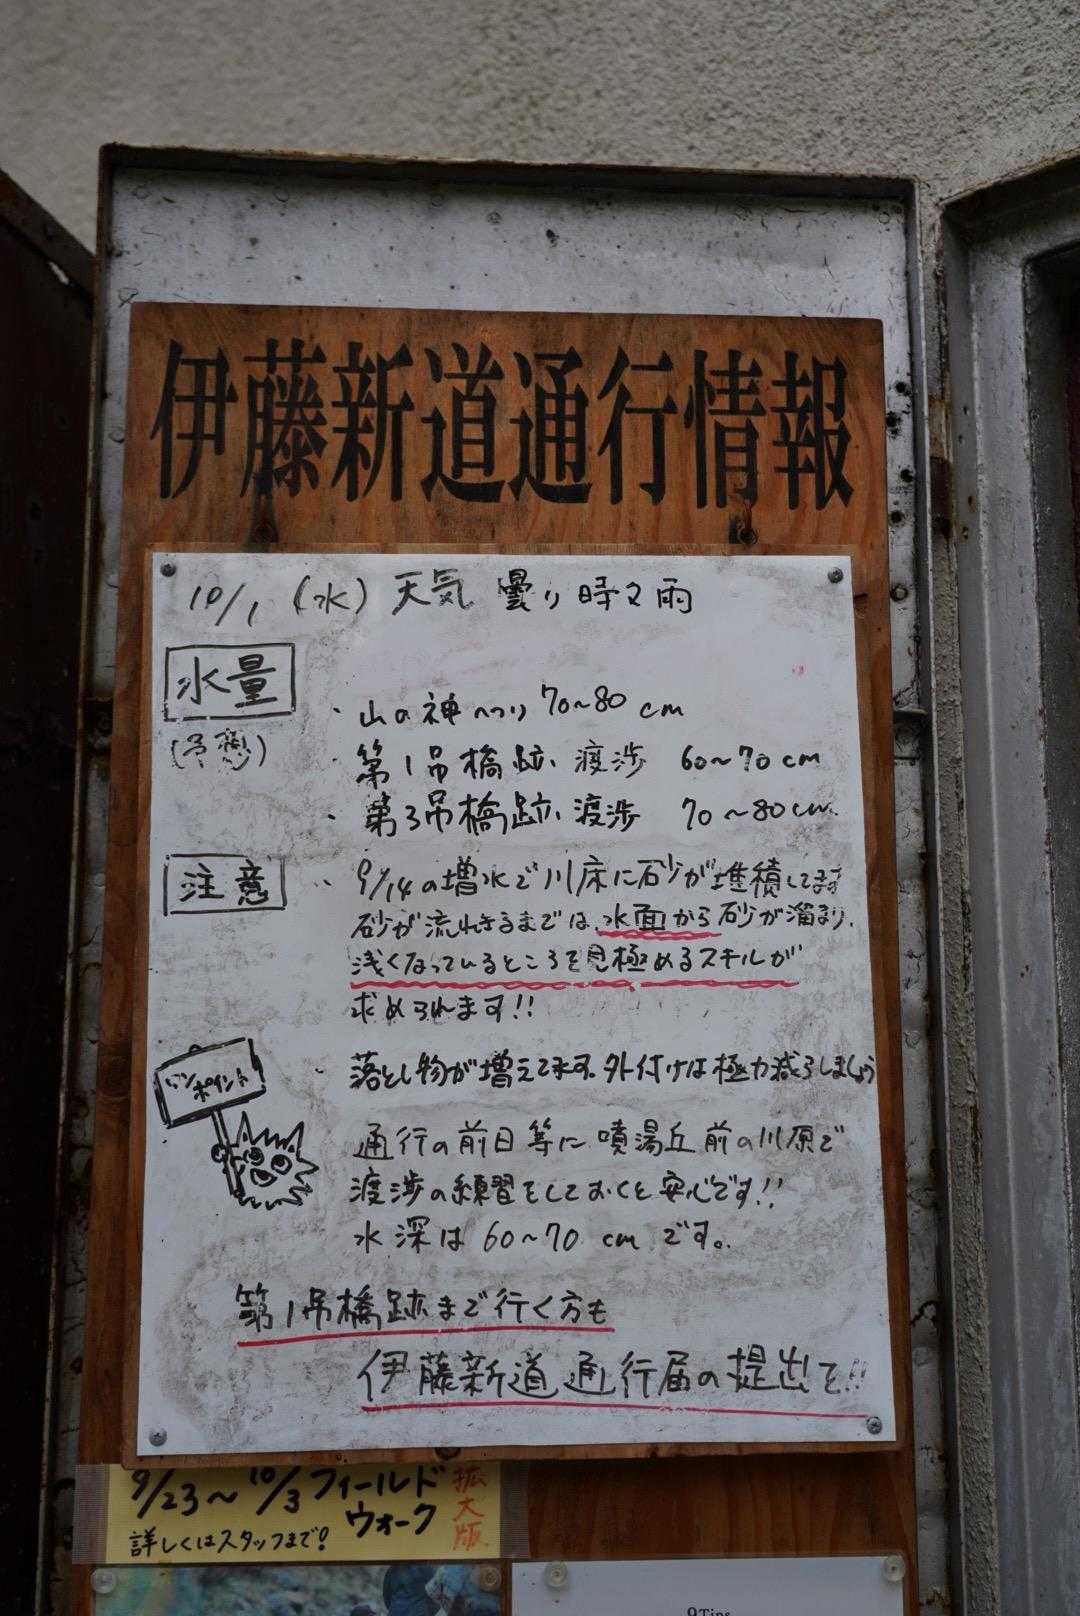 伊藤新道通行情報
10/1 (水) 天気 曇り時々雨
水量
(予想)
・山の神へつり 70〜80cm
・第1吊橋跡 渡渉 60〜70cm
・第3吊橋跡 渡渉 70〜80cm
注意
・9/14の増水で川床に砂が堆積してます
砂が流れきるまでは、水面から砂が溜まり、
浅くなっているところを見極めるスキルが
求められます!!
・落とし物が増えてます。外付けは極力減らしましょう
ワン
ポイント
通行の前日等に噴湯丘前の川原で
渡渉の練習をしておくと安心です!!
水深は60〜70cmです。
第1吊橋跡まで行く方も
伊藤新道通行届の提出を!!
9/23〜10/3 フィールド
ウォーク
拡大版
詳しくはスタッフまで!
9Tips